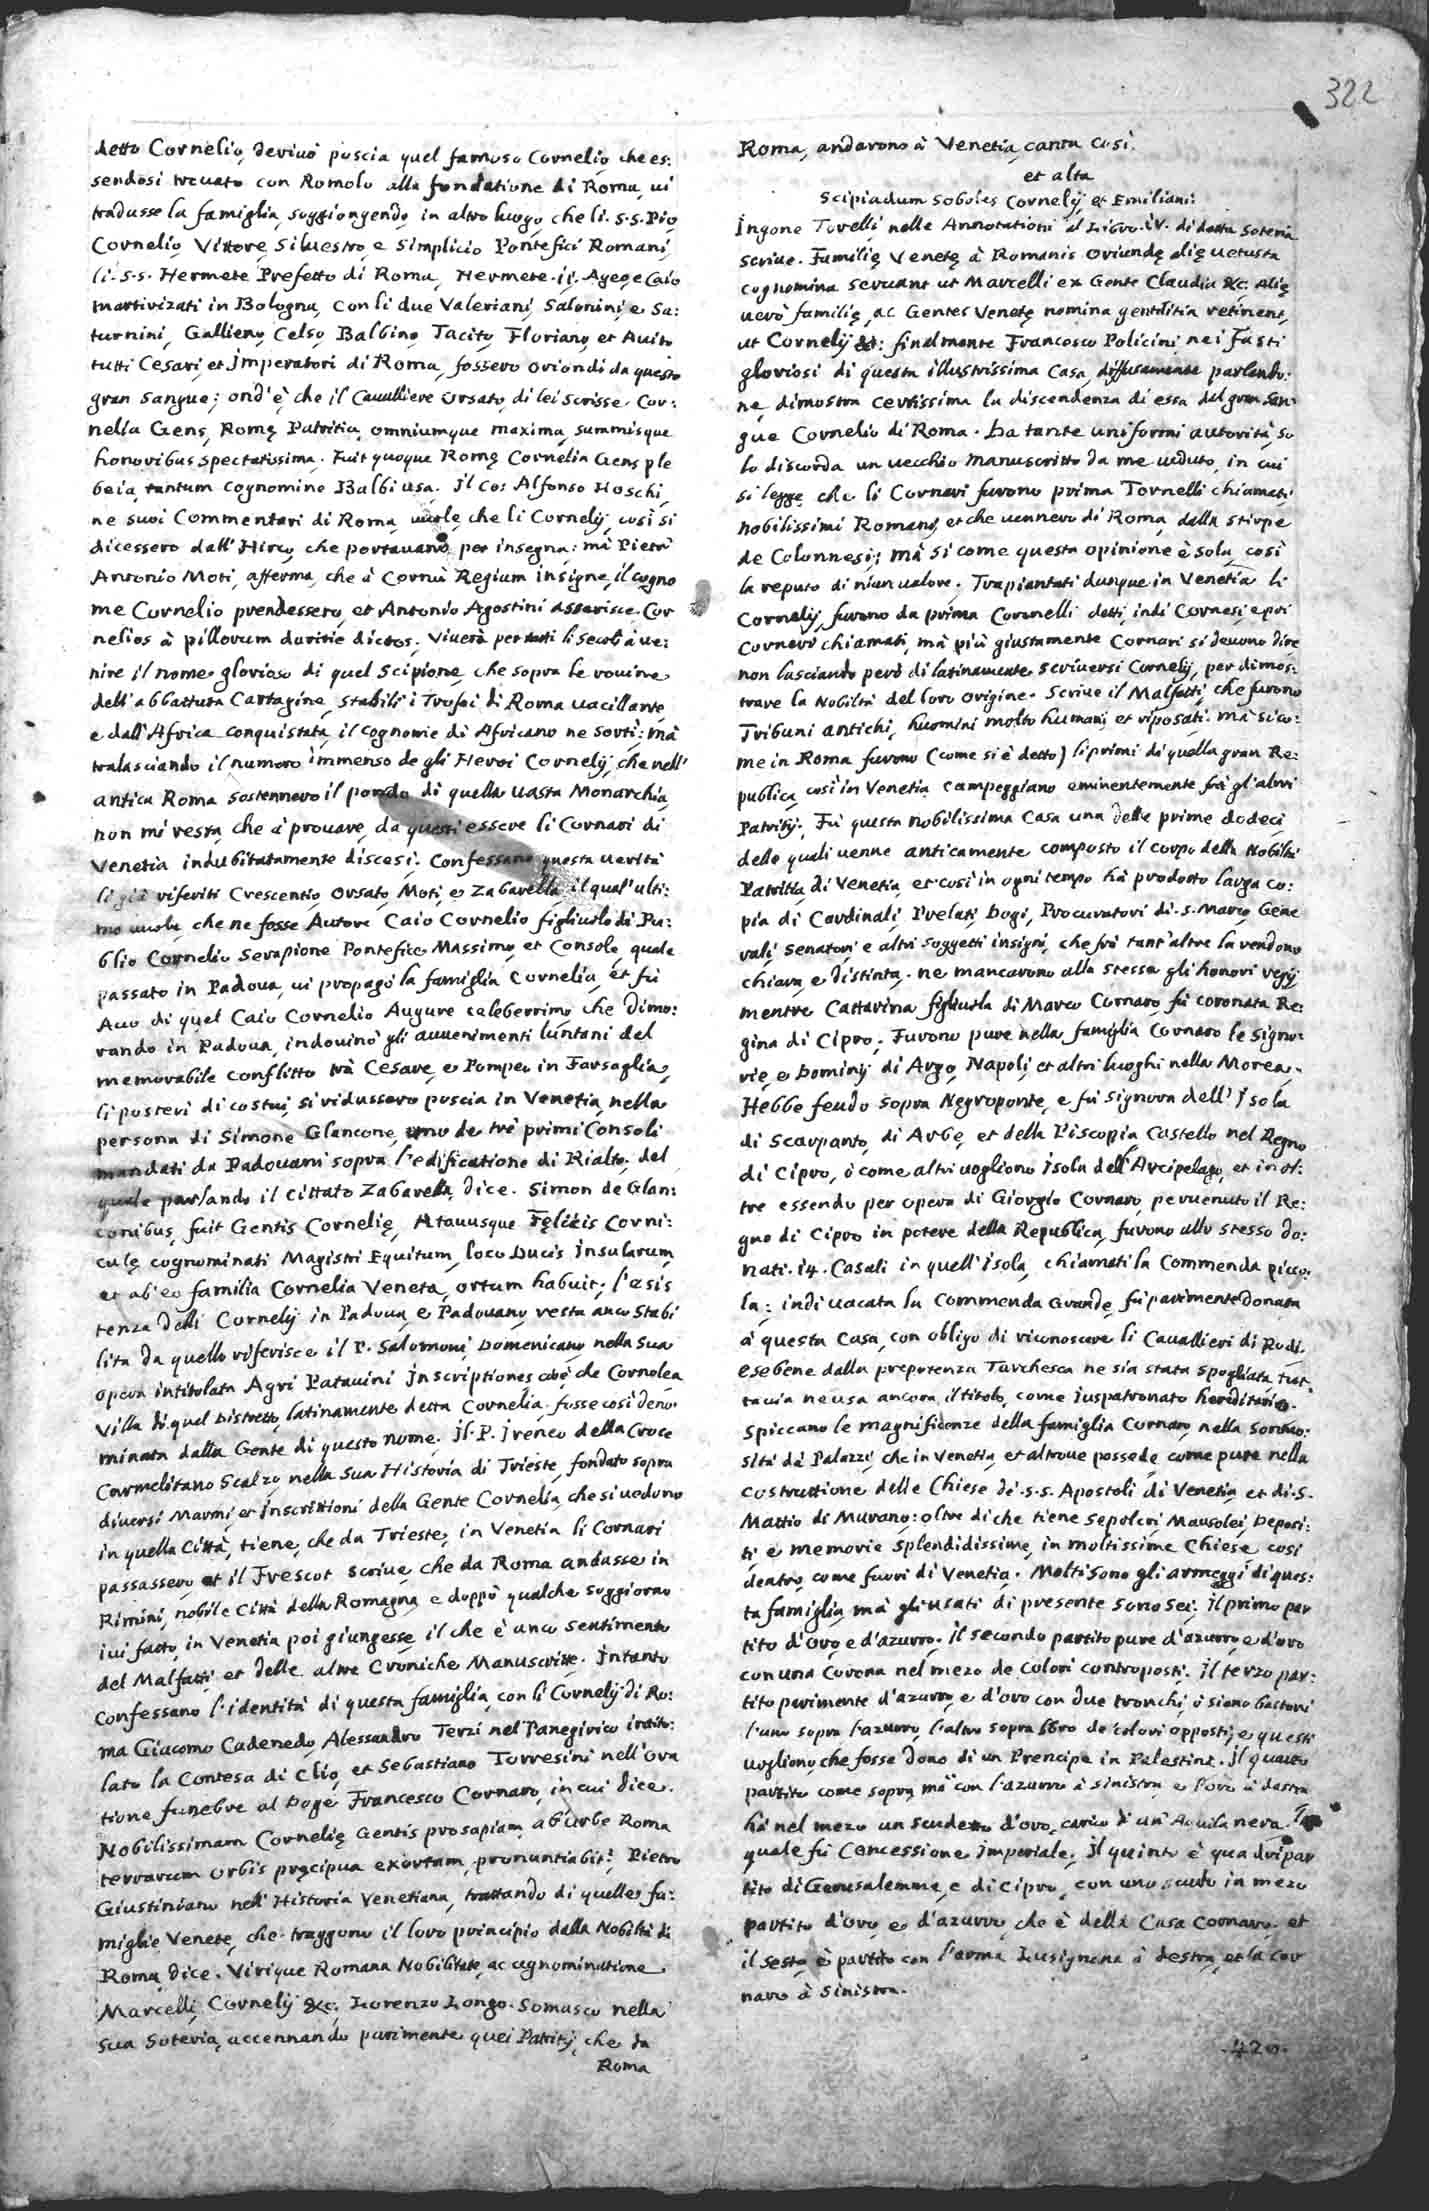 322
detto Cornelio, derivò poscia quel famoso Cornelio, che es:
sendosi trovato con Romolo alla fondatione di Roma, ui
tradusse la famiglia, soggiongendo, in altro luogo, che li. S.S. Pio,
Cornelio, Vittore, Siluestro, e Simplicio Pontefici Romani,
li. S.S. Hermete Prefetto di Roma, Hermete. ii. Ageo, e Caio
martirizati in Bologna, con li due Valeriani, Salonini, e Sa:
turnini, Gallieno, Celso, Balbino, Tacito, Floriano, et Auito
tutti Cesari, et Imperatori di Roma, fossero oriondi da questo
gran sangue; ond'è, che il Cauelliere Orsato, di lei scrisse. Cor:
nelia Gens, Romę Patritia, omniumque maxima, summisque
honoribus spectatissima. Fuit quoque Romę Cornelia Gens ple
beia, tantum cognomine Balbi usa. Il Co: Alfonso Hoschi,
ne suoi Commentari di Roma, uuole, che li Cornelij, così si
dicessero dall'Hirco, che portauano per insegna: mà Pietro
Antonio Moti, afferma, che à Cornù Regium insigne, il cogno
me Cornelio prendessero, et Antonio Agostini asserisce. Cor
nelios à pillorum duritie dictos. Viuerà per tutti li secoli à ue:
nire il nome glorioso di quel Scipione, che sopra le rouine
dell'abbattuta Cartagine, stabilì i Trofei di Roma uacillante,
e dall'Africa conquistata, il cognome di Africano ne sortì: mà
tralasciando il numero immenso de gli Heroi Cornelij, che nell'
antica Roma sostennero il pondo di quella uasta Monarchia,
non mi resta, che à prouare, da questi essere li Cornari di
Venetia indubitatamente discesi. Confessano questa uerità
li già riferiti Crescentio, Orsato, Moti, e Zabarella, il qual'ulti:
mo uuole, che ne fosse Autore Caio Cornelio figliuolo di Pu:
blio Cornelio Serapione Pontefice Massimo, et Console, quale
passato in Padoua, ui propagò la famiglia Cornelia, et fù
Auo di quel Caio Cornelio Augure celeberrimo che dimo:
rando in Padoua, indouinò gli auuenimenti lontani del
memorabile conflitto trà Cesare, e Pompeo in Farsaglia,
li posteri di costui, si ridussero poscia in Venetia, nella
persona di Simone Glancone, uno de trè primi Consoli
mandati da Padouani sopra l'edificatione di Rialto, del
quale parlando il cittato Zabarella, dice. Simon de Glan:
conibus, fuit Gentis Cornelię, Atauusque Fęlicis Corni:
culę cognominati Magistri Equitum, loco Ducis Insularum,
et ab eo familia Cornelia Veneta, ortum habuit; l'esis
tenza delli Cornelij in Padoua, e Padouano, resta anco stabi
lita da quello riferisce il P. Salomoni Domenicano, nella sua
opera intitolata Agri Patauini Inscriptiones, cioè che Cornolea
Villa di quel Distretto, latinamente detta Cornelia. fosse così deno
minata dalla Gente di questo nome. Il. P. Ireneo della Croce
Carmelitano Scalzo, nella sua Historia di Trieste, fondato sopra
diuersi Marmi, et Inscrittioni della Gente Cornelia, che si uedono
in quella Città, tiene, che da Trieste, in Venetia li Cornari
passassero, et il Frescot scriue, che da Roma andasse in
Rimini, nobile Città della Romagna, e doppò qualche soggiorno
iui fatto, in Venetia poi giungesse, il che è anco sentimento
del Malfatti, et delle altre Croniche Manuscritte. Intanto
confessano l'identità di questa famiglia, con li Cornelij di Ro:
ma Giacomo Cadenedo, Alessandro Terzi nel Panegirico intito:
lato la Contesa di Clio, et Sebastiano Torresini nell'ora
tione funebre al Doge Francesco Cornaro, in cui dice.
Nobilissimam Cornelię Gentis prosapiam, ab Urbe Roma
terrarum orbis pręcipua exortam, pronuntiabit? Pietro
Giustiniano nell'Historia Venetiana, trattando di quelle fa:
miglie Venete, che traggono il loro principio dalla Nobiltà di
Roma, dice. Virique Romana Nobilitate, ac agnominatione.
Marcelli, Cornelij &c. Lorenzo Longo. Somasco nella
sua Soteria, accennando parimente quei Patritij, che da
Roma
Roma, andarono à Venetia, canta così.
et alta
Scipiadum soboles Cornelij, et Emiliani:
Ingone Torelli, nelle Annotationi al Libro. IV. di detta Soteria
scriue. Familię Venetę à Romanis oriundę alię uetusta
cognomina seruant ut Marcelli ex Gente Claudia &c. Alię
uerò familię, ac Gentes Venetę nomina gentilitia retinent,
ut Cornelij &c: finalmente Francesco Policini, nei Fasti
gloriosi di questa illustrissima Casa, diffusamente parlando:
ne, dimostra certissima la discendenza di essa del gran San:
gue Cornelio di Roma. Da tante uniformi autorità, so
lo discorda un uecchio manuscritto da me ueduto, in cui
si legge, che li Cornari furono prima Tornelli chiamati,
nobilissimi Romani, et che uennero di Roma, dalla stirpe
de Colonnesi; mà si come questa opinione è sola, così
la reputo di niun ualore. Trapiantati dunque in Venetia li
Cornelij, furono da prima Coronelli detti, indi Cornesi, e poi
Corneri chiamati, mà più giustamente Cornari si deuono dire
non lasciando però di latinamente scriuersi Cornelij, per dimos:
trare la Nobiltà del loro origine. Scriue il Malfatti, che furono
Tribuni antichi, huomini molto humani, et riposati: mà si co:
me in Roma furono (come si è detto) li primi di quella gran Re:
publica, così in Venetia campeggiano eminentemente frà gl'altri
Patritij. Fù questa nobilissima Casa una delle prime dodeci,
delle quali uenne anticamente composto il corpo della Nobiltà
Patritia di Venetia, et così in ogni tempo hà prodotto larga co:
pia di Cardinali, Prelati, Dogi, Procuratori di. S. Marco, Gene
rali, Senatori, e altri soggetti insigni, che frà tant'altre la rendono
chiara, e distinta. ne mancarono alla stessa gli honori regij
mentre Cattarina figliuola di Marco Cornaro, fù coronata Re:
gina di Cipro; Furono pure nella famiglia Cornaro le Signo:
rie, e Dominij di Argo, Napoli, et altri luoghi nella Morea.
Hebbe feudo sopra Negroponte, e fù signora dell'Isola
di Scarpanto, di Arbe, et della Piscopia, Castello nel Regno
di Cipro, ò come altri uogliono Isola dell'Arcipelago, et in ol:
tre essendo per opera di Giorgio Cornaro, peruenuto il Re:
gno di Cipro in potere della Republica, furono allo stesso do:
nati. 14. Casali in quell'Isola, chiamati la Commenda picco:
la: indi uacata la Commenda Grande, fù parimente donata
à questa Casa, con obligo di riconoscere li Cauallieri di Rodi,
e se bene dalla prepotenza Turchesca ne sia stata spogliata, tut:
tauia ne usa ancora, il titolo, come iuspatronato hereditario.
Spiccano le magnificenze della famiglia Cornaro, nella sontuo:
sità dè Palazzi, che in Venetia, et altroue possede, come pure nella
costruttione delle Chiese di. S.S. Apostoli di Venetia, et di. S.
Mattio di Murano: oltre di che tiene sepolcri, Mausolei, Deposi:
ti, e memorie splendidissime, in moltissime Chiese, così
dentro, come fuori di Venetia. Molti sono gli armeggi di ques:
ta famiglia, mà gli usati di presente sono sei. Il primo par
tito d'oro, e d'azurro. Il secondo partito pure d'azurro, e d'oro
con una Corona nel mezo de colori contraposti. Il terzo par:
tito parimente d'azurro, e d'oro con due tronchi, ò siano bastoni
l'uno sopra l'azurro, l'altro sopra l'oro de colori opposti, e questi
uogliono che fosse dono di un Prencipe in Palestina. Il quarto
partito come sopra, mà con l'azurro à sinistra, e l'oro à destra
hà nel mezo un scudetto d'oro, carico d'un'Aquila nera. la
quale fù Concessione Imperiale. Il quinto è quadripar
tito di Gerusalemme, e di Cipro, con uno scudo in mezo
partito d'oro, e d'azurro, che è della Casa Cornaro, et
il sesto, è partito con l'arma Lusignana à destra, et la Cor
naro à sinistra.
.420.